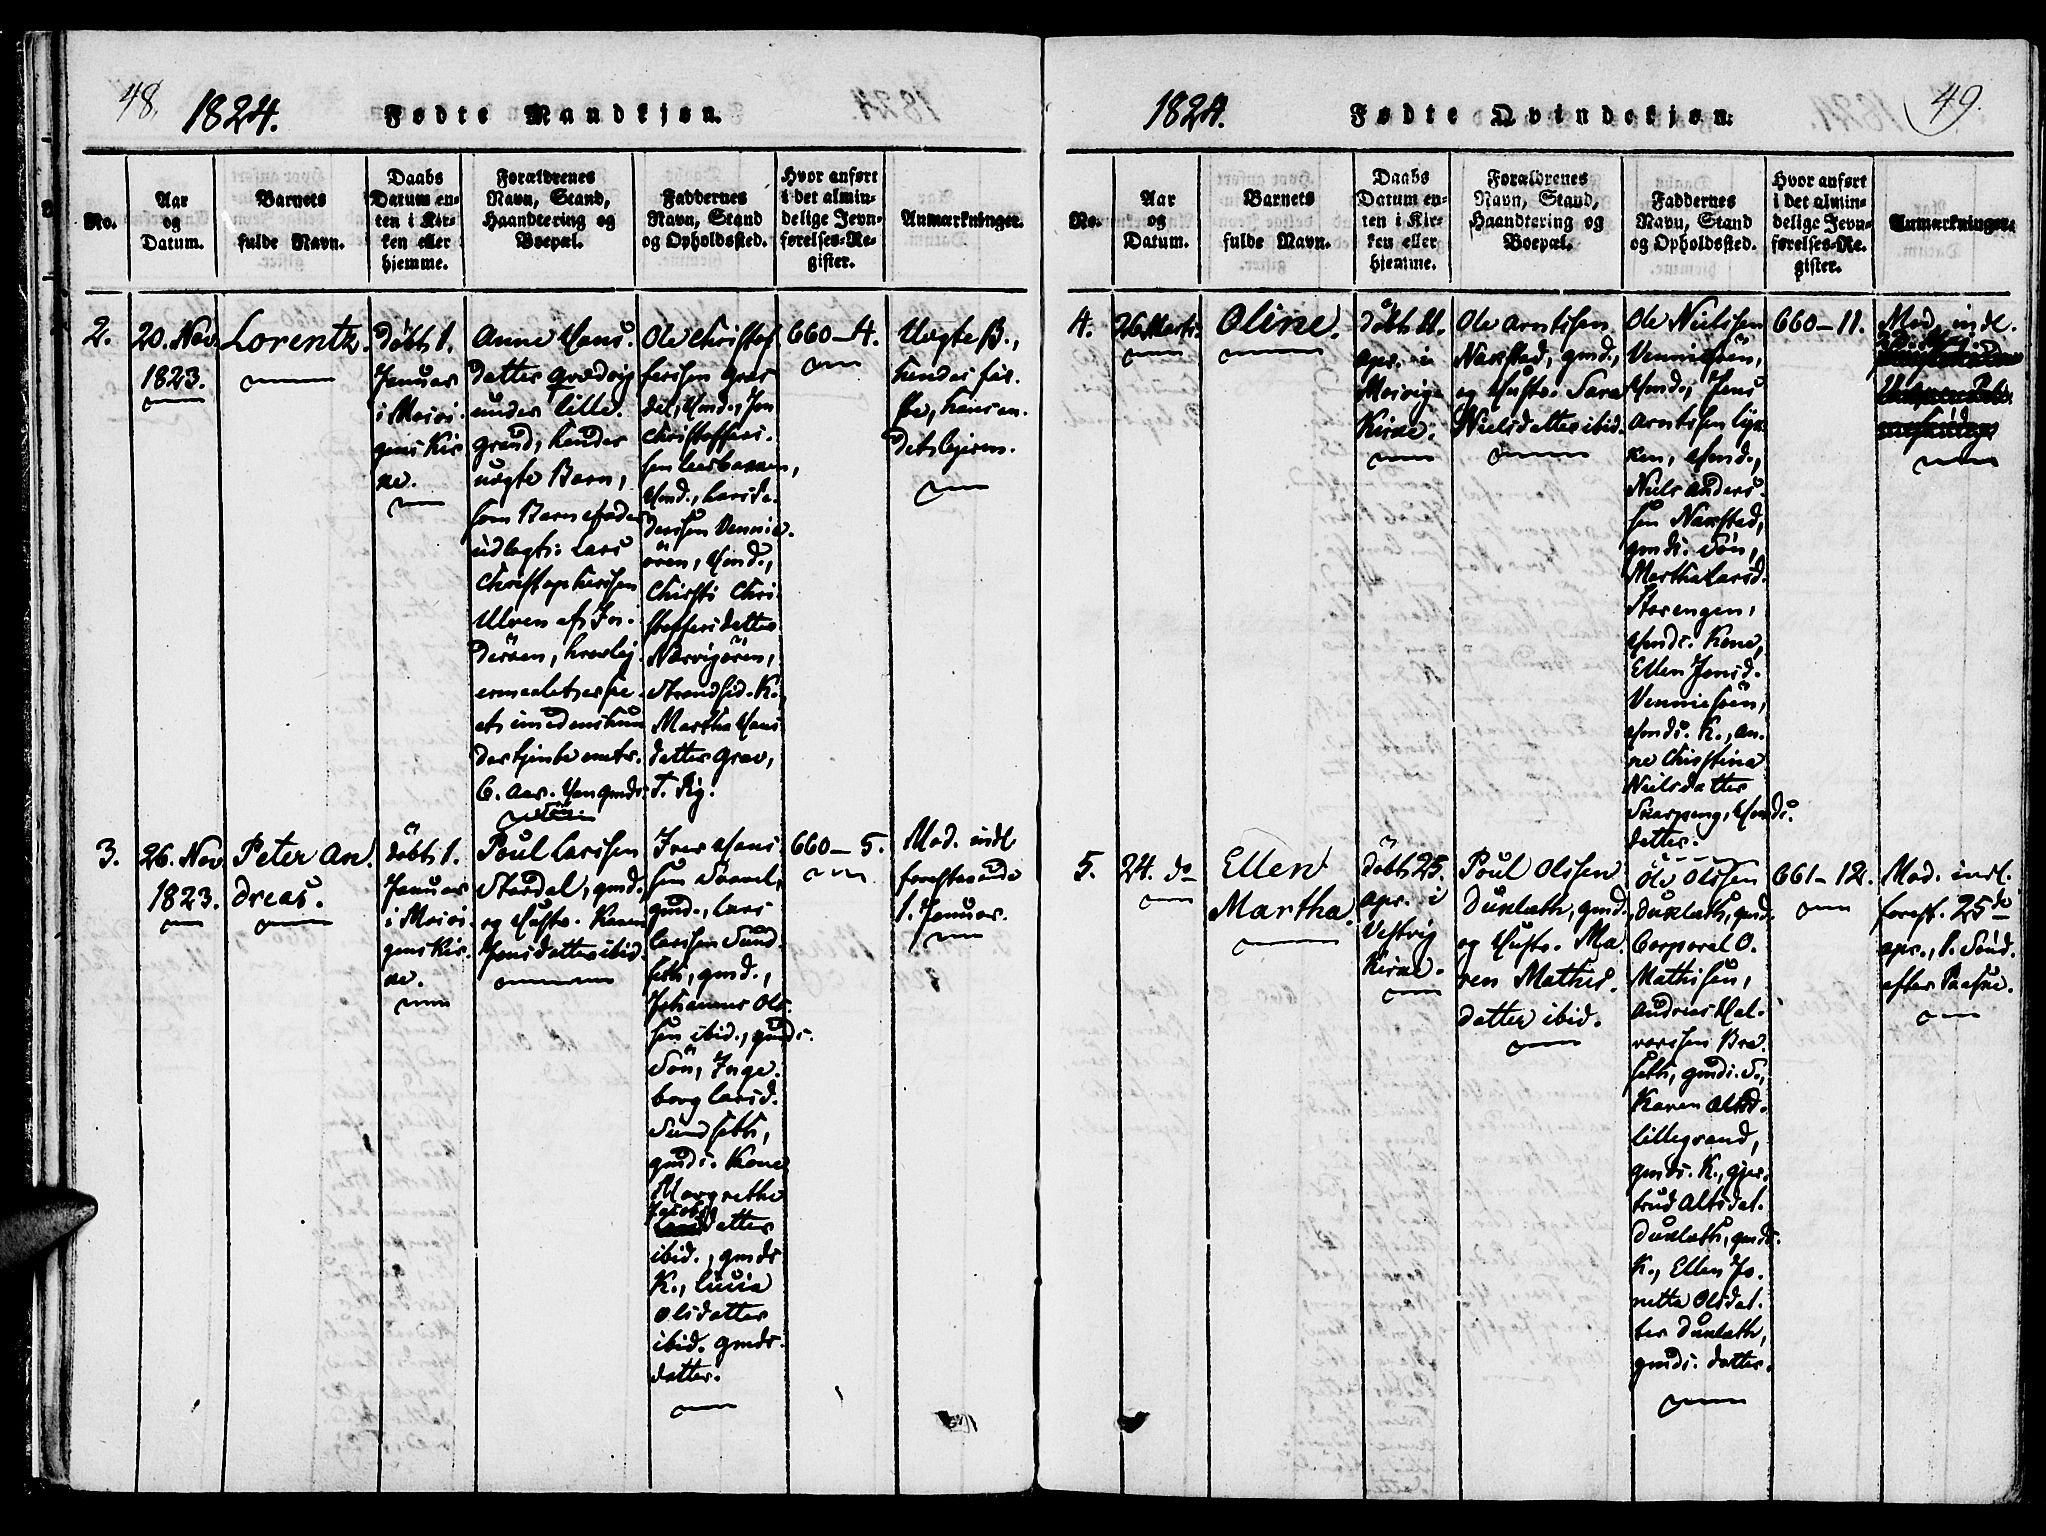 48.
1824.
Fødte Mandkjøn.
No.
Aar
og
Datum.
Barnets
fulde Navn.
Daabs
Datum en-
ten i Kir-
ken eller
hjemme.
Forældrenes
Navn, Stand,
Haandtering og
Boepæl.
Faddernes
Navn, Stand
og Opholdssted.
Hvor anført
i det almin-
delige Jevn-
førelses-Re-
gister.
Anmærkninger.
2.
20. Nov.
1823.
Lorentz.
Döbt 1.
Januar
i Mosvi
gens Kir
ke.
Anne Hans.
datter
under Lille.
grand, hendes
uægte Barn,
som Barnefader
udlagt: Lars
Christophersen
Ulven af In.
deröen,
6. Aar.
Ole Christof
fersen
Hmd., Jon
Christoffers.
sen
Hmd., Lars Pe.
dersen Vennie.
ören, Hmd.,
Chirsti Chri.
stoffersdatter
Nervigören,
Strandsid. K.,
Martha Hans
datter Grav,
T. Pig.
660-4.
Uægte B.,
hendes för.
ste, hans an.
det Lejerm.
3.
26. Nov
1823.
Peter An.
dreas.
döbt 1.
Januar
i Mosvi
gens Kir.
ke.
Poul Larssen
Stordal, gmd.
og Hustr. Karen
Jensdatter ibid.
Iver Hans
sen
gmd., Lars
Larssen Sund.
seth, gmd.,
Johannes Ols.
sen ibid., gmds.
Sön, Inge.
borg Larsd.
Sundseth,
gmds. Kone
Margrethe
Jacobs
datter
ibid., gmds
K., Lucia
Olsdatter
ibid. gmds.
datter.
660-5.
Mod. indl
förstævnte
1. Januar.
49.
1824.
Fødte Qvindekjøn.
No.
Aar
og
Datum.
Barnets
fulde Navn.
Daabs
Datum en-
ten i Kir-
ken eller
hjemme.
Forældrenes
Navn, Stand,
Haandtering og
Boepæl.
Faddernes
Navn, Stand
og Opholdssted.
Hvor anført
i det almin-
delige Jevn-
førelses-Re-
gister.
Anmærkninger.
4.
26. Marts.
Oline.
döbt 11.
apr. i
Mosvigs
Kirke.
Ole Arntssen
Naustad, gmd.,
og Hustr. Sara
Nielsdatter ibid.
Ole Nielssen
Venniesöen,
Hmd., Jens
Arntssen Lyn
Hmd.,
Niels Anders.
sen Naustad,
gmds. Sön,
Martha Larsd.
Storengen,
Hmds. Kone,
Ellen Jensd.
Venniesöen,
Hmds. K., An.
ne Christina
Nielsdatter
Hmds.
datter.
660-11.
Mod. indl.
5.
24. do
Ellen
Martha.
döbt 25.
apr. i
Vestvig
Kirke.
Poul Olssen
Duklæth, gmd.
og Hustr. Ma.
ren Mathis.
datter ibid.
Ole Olssen
Duklæth, gmd.
Corporal O.
Mathissen,
Andreas Hal.
vorssen Bra.
seth, gmds. S.,
Karen Olsd.
Lillegrand,
gmds. K., Gjer.
trud
Duklæth, gmds.
K., Ellen Jo.
netta Olsdat.
ter Duklæth,
gmds. datter.
661-12.
Mod. indl.
förest. 25de
apr., 1. Sönd.
efter Paaske.